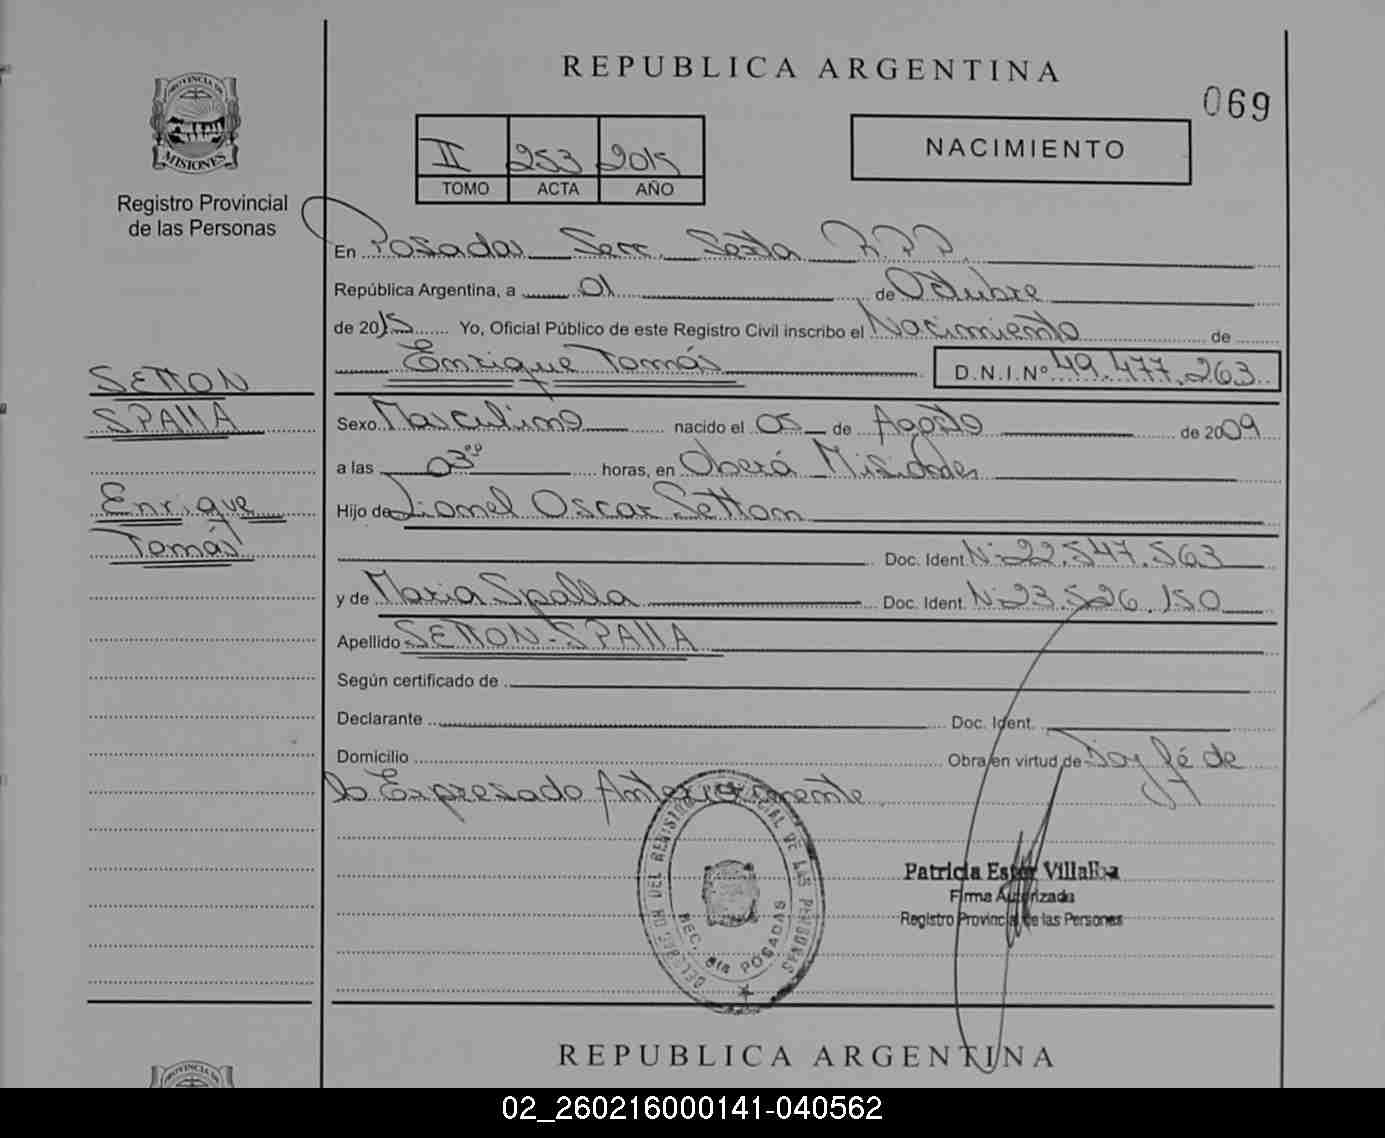 REPUBLICA ARGENTINA
069
PROVINCIA DE
MISIONES
Registro Provincial
de las Personas
II 253 2015
TOMO ACTA AÑO
NACIMIENTO
En Posadas Secc. Sexta R.P.P.
República Argentina, a 01 de Octubre
de 2015 Yo, Oficial Público de este Registro Civil inscribo el Nacimiento de
Enrique Tomás D.N.I.Nº 49.477.263
SETTON
SPALLA
Enrique
Tomás
Sexo Masculino nacido el 05 de Agosto de 2009
a las 03⁰⁰ horas, en Oberá Misiones
Hijo de Lionel Oscar Setton
Doc. Ident. Nº 22.547.563
y de Maria Spalla Doc. Ident. Nº 23.526.150
Apellido SETTON-SPALLA
Según certificado de
Declarante Doc. Ident.
Domicilio Obra en virtud de Doy fé de
lo Expresado Anteriormente
DEL REGISTRO PROVINCIAL DE LAS PERSONAS
SEC. 6ta POSADAS
Patricia Ester Villalba
Firma Autorizada
Registro Provincial de las Personas
REPUBLICA ARGENTINA
PROVINCIA DE
02_260216000141-040562